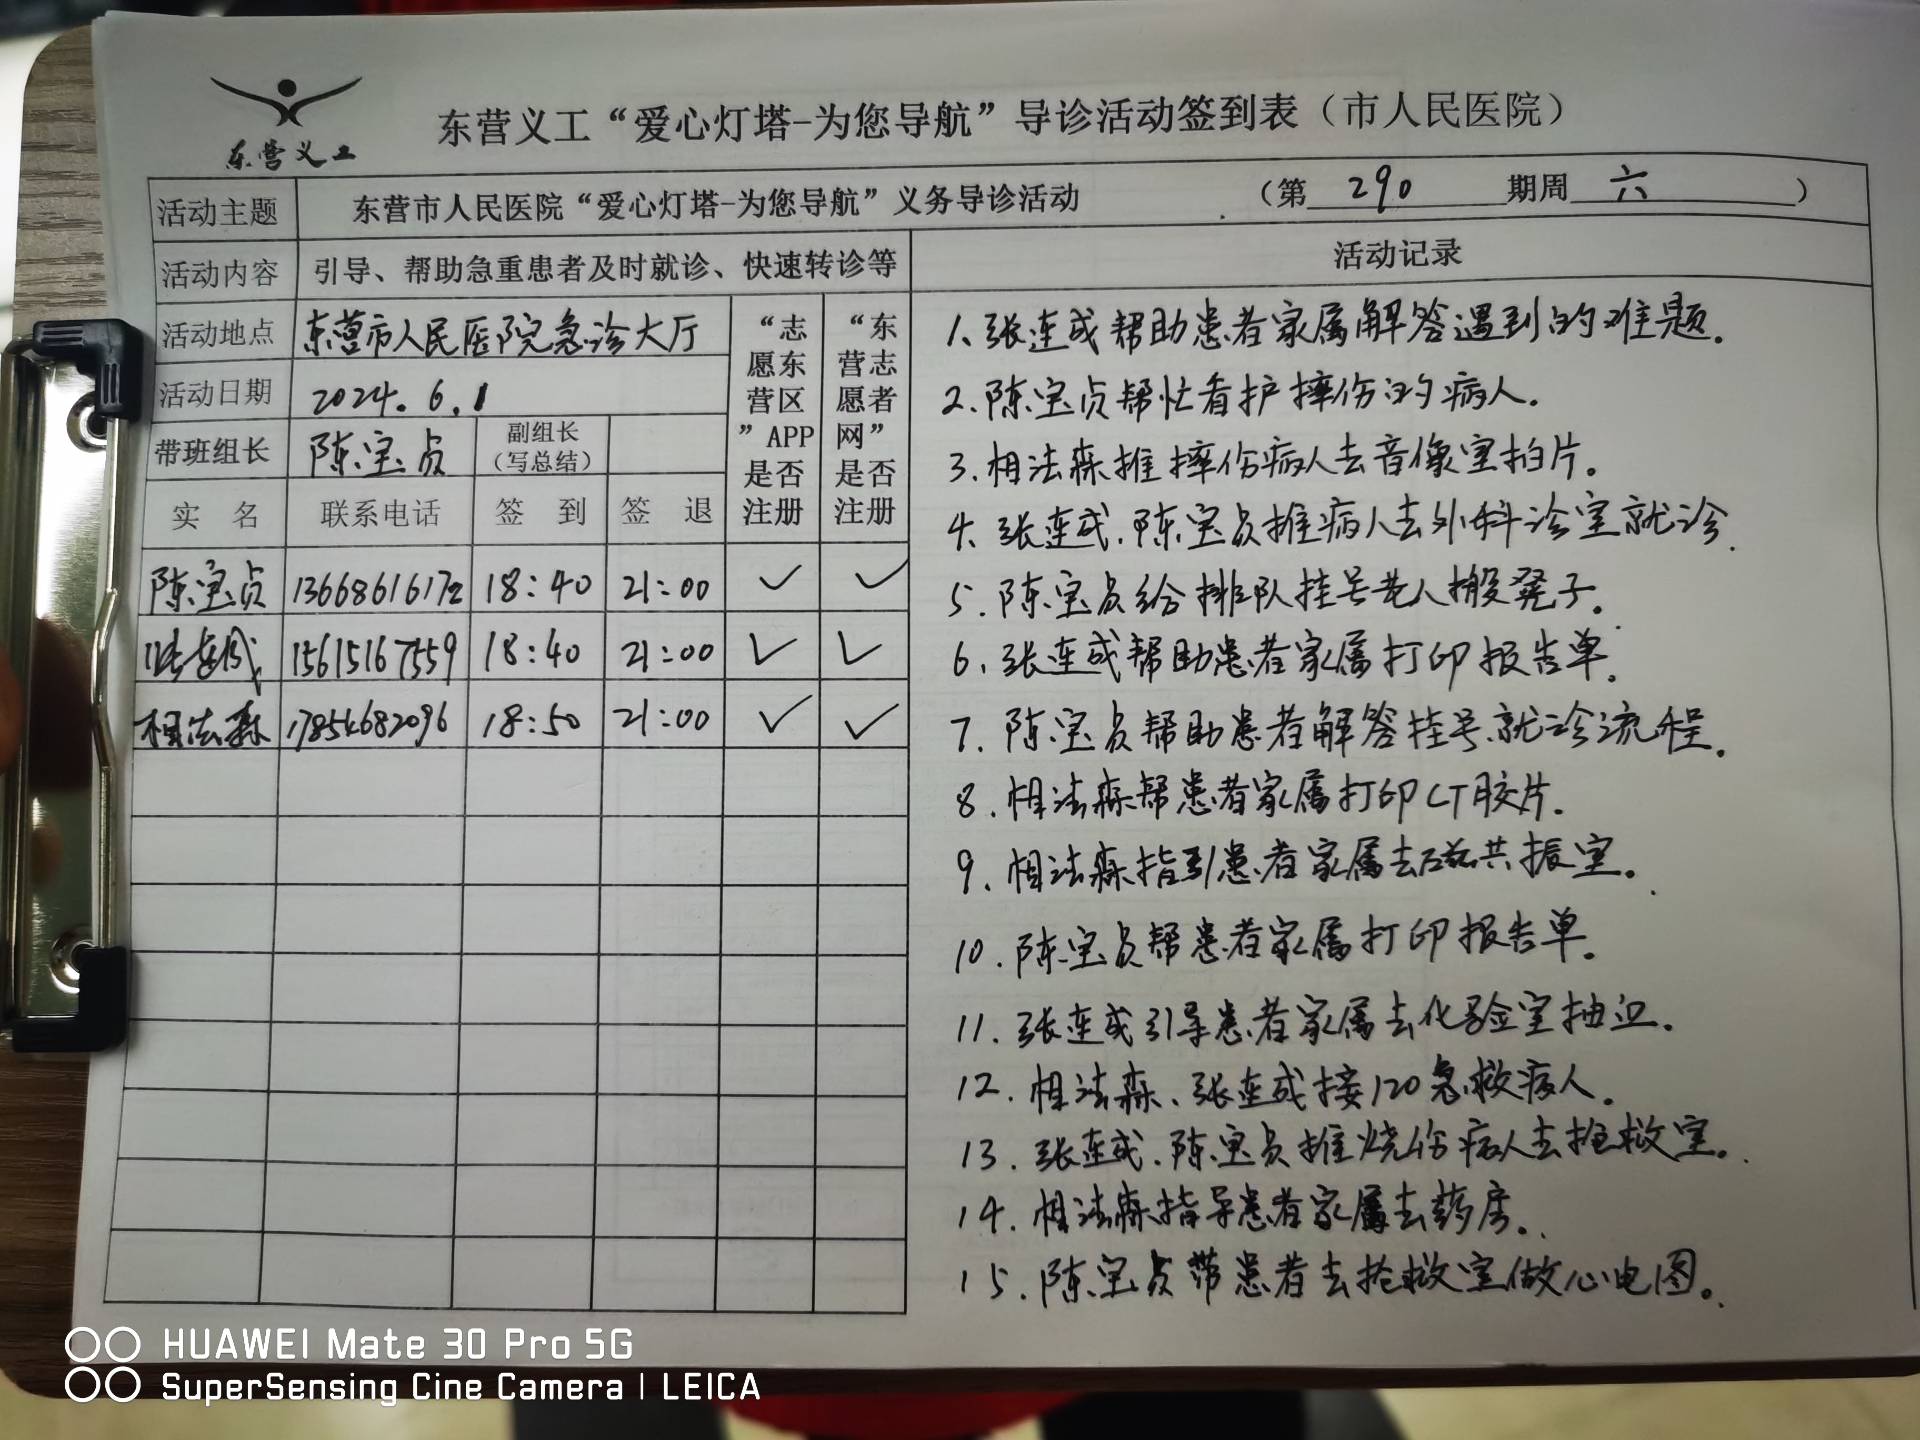 东营义工
东营义工“爱心灯塔-为您导航”导诊活动签到表（市人民医院）
活动主题 东营市人民医院“爱心灯塔-为您导航”义务导诊活动 （第 290 期周 六 ）
活动内容 引导、帮助急重患者及时就诊、快速转诊等
活动地点 东营市人民医院急诊大厅
活动日期 2024.6.1
带班组长 陈宝贞 副组长（写总结）
“志愿东营区”APP是否注册
“东营志愿者网”是否注册
实名 联系电话 签到 签退
陈宝贞 13668616172 18:40 21:00 ✓ ✓
张连成 15615167559 18:40 21:00 ✓ ✓
相法森 17854682096 18:50 21:00 ✓ ✓
活动记录
1、张连成帮助患者家属解答遇到的难题。
2、陈宝贞帮忙看护摔伤的病人。
3、相法森推摔伤病人去音像室拍片。
4、张连成、陈宝贞推病人去外科诊室就诊.
5、陈宝贞给排队挂号老人搬凳子。
6、张连成帮助患者家属打印报告单。
7、陈宝贞帮助患者解答挂号、就诊流程。
8、相法森帮患者家属打印CT胶片。
9、相法森指引患者家属去磁共振室。
10、陈宝贞帮患者家属打印报告单。
11、张连成引导患者家属去化验室抽血。
12、相法森、张连成接120急救病人。
13、张连成、陈宝贞推烧伤病人去抢救室。
14、相法森指导患者家属去药房。
15、陈宝贞带患者去抢救室做心电图。
HUAWEI Mate 30 Pro 5G
SuperSensing Cine Camera | LEICA